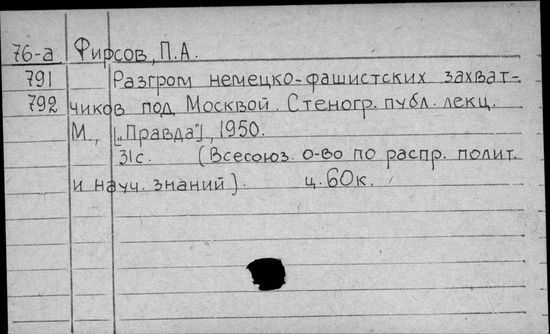 76-а Фирсов, П.А.
791 Разгром немецко-фашистских захват-
792 чиков под Москвой. Стеногр. публ. лекц.
М., [„Правда"], 1950.
31с. (Всесоюз. о-во по распр. полит.
и науч. знаний). ц. 60к.